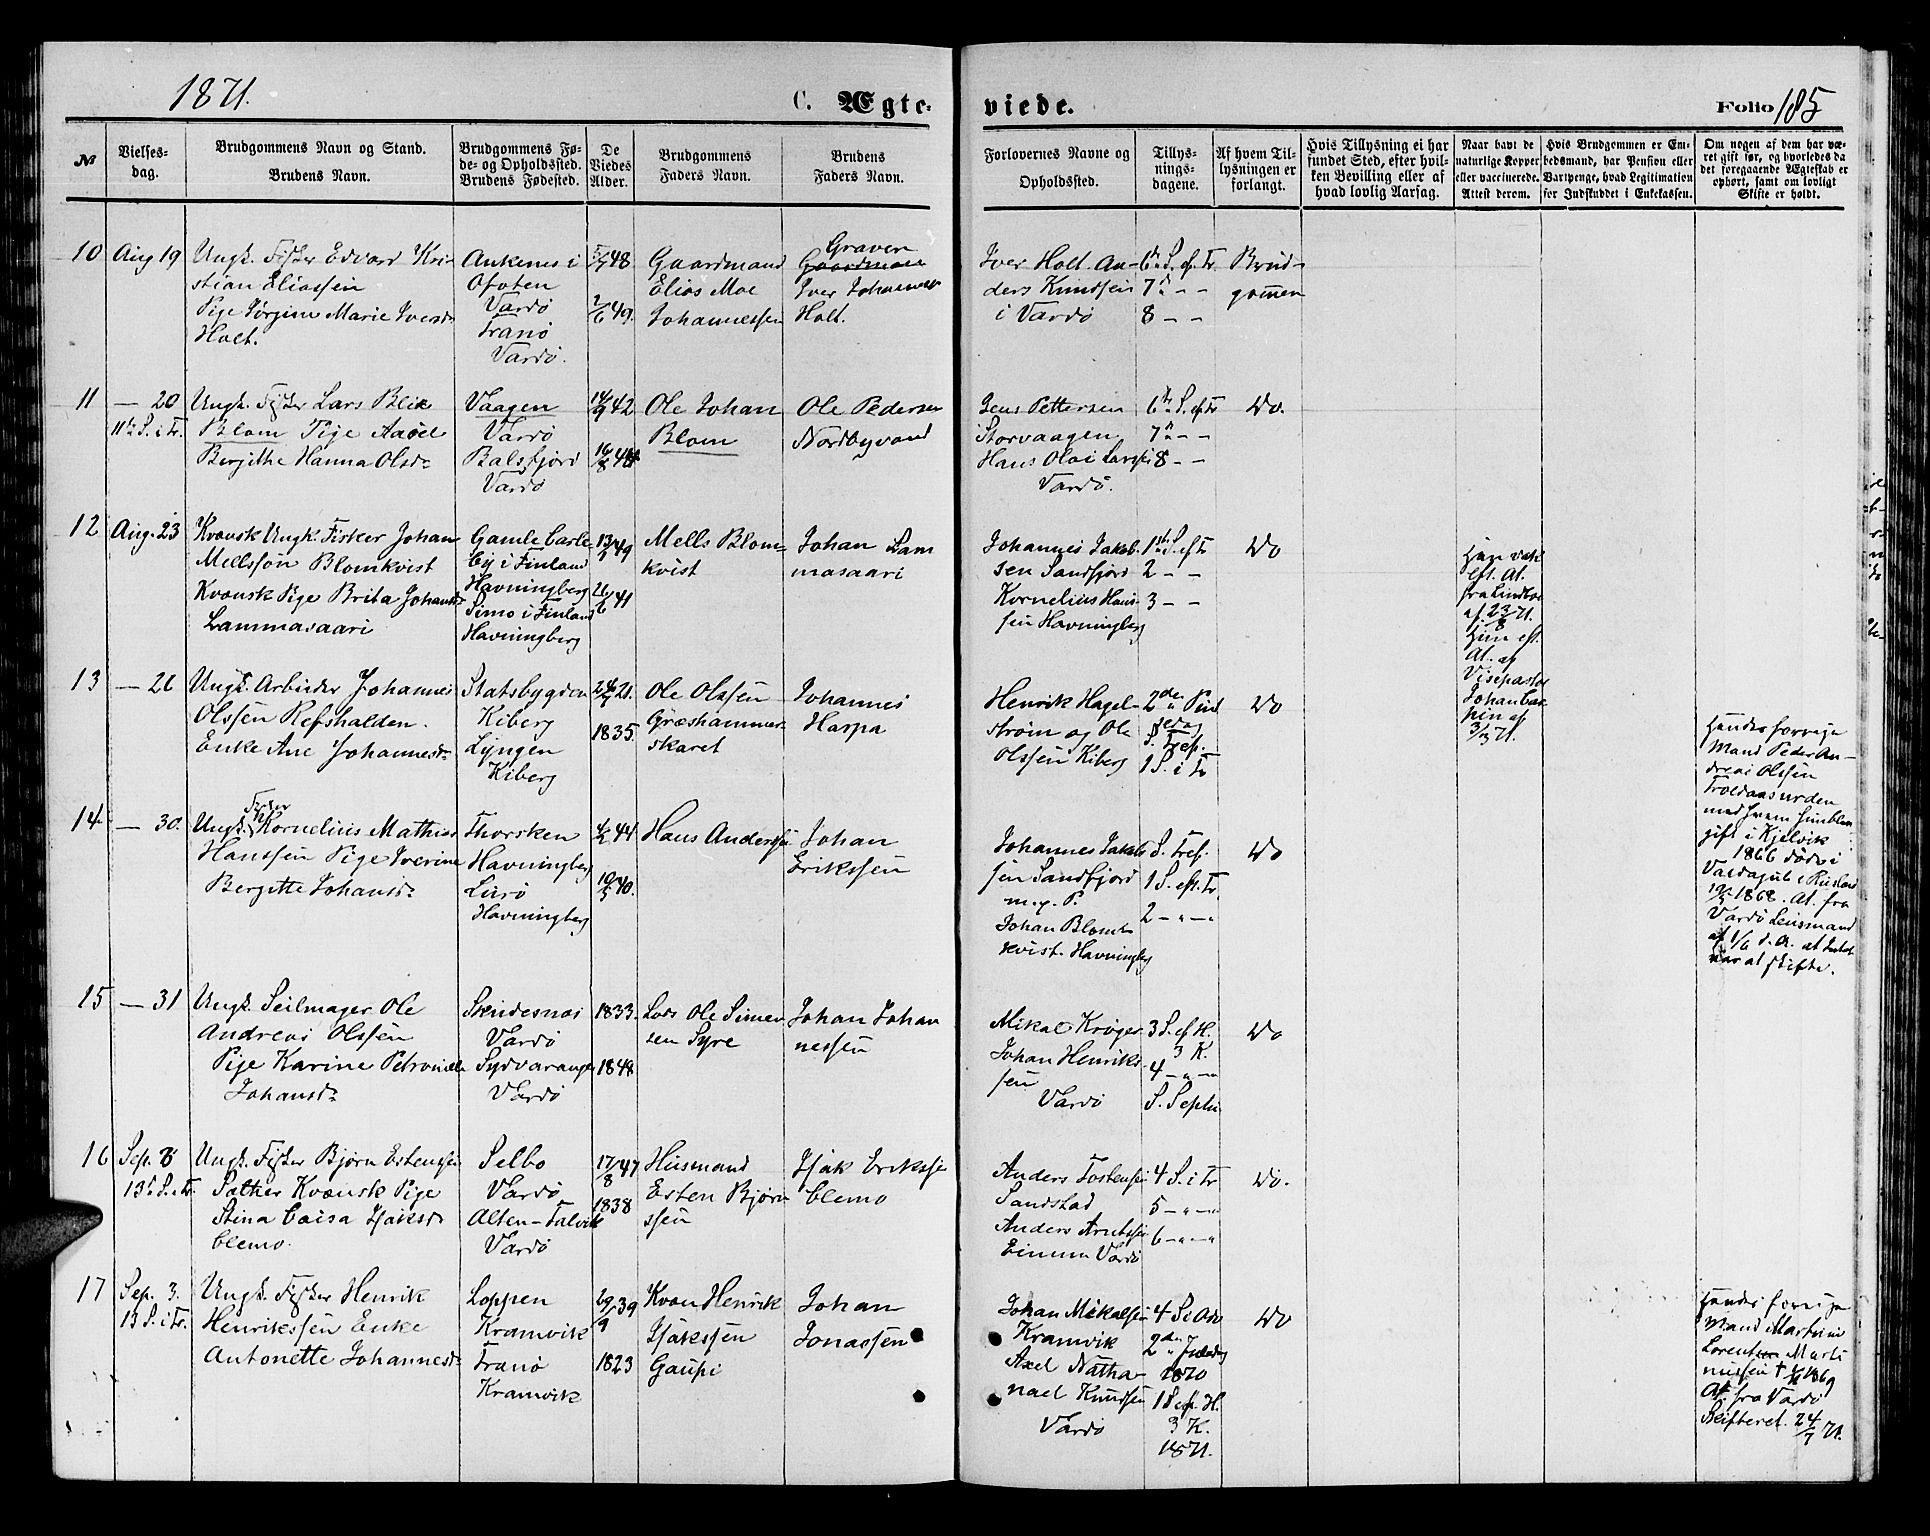 1871.
C. Ægte-
viede.
Folio 185
№
Vielses-
dag.
Brudgommens Navn og Stand.
Brudens Navn.
Brudgommens Fø-
de- og Opholdssted.
Brudens Fødested.
De
Viedes
Alder.
Brudgommens
Faders Navn.
Brudens
Faders Navn.
Forlovernes Navne og
Opholdssted.
Tillys-
nings-
dagene.
Af hvem Til-
lysningen er
forlangt.
Hvis Tillysning ei har
fundet Sted, efter hvil-
ken Bevilling eller af
hvad lovlig Aarsag.
Naar havt de
naturlige Kopper
eller vaccinerede.
Attest derom.
Hvis Brudgommen er Em-
bedsmand, har Pension eller
Vartpenge, hvad Legitimation
for Indskuddet i Enkekassen.
Om nogen af dem har væ-
ret gift før, og hvorledes da
det foregaaende Ægteskab er
ophørt, samt om lovligt
Skifte er holdt.
10
Aug 19
Ungk. Fisker Edvard Kri-
stian Eliassen
Pige Jørgine Marie Iversd.
Holt.
Ankenes i
Ofoten
Vardø
Tranø
Vardø.
48.
49.
Gaardmand
Elias Moe
Johannessen
Graver
Gaardmand
Iver Johannes
Holt.
Iver Holt. An-
ders Knudsen
i Vardø
6te S. ef. Tr
7de - -
8 - -
Brud-
gommen
11
— 20
11te S. i Tr.
Ungk. Fisker Lars Blix
Blom Pige Aasel
Bergithe Hanna Olsd.
Vaagen
Vardø
Balsfjord
Vardø
14/9 42
16/8 48
Ole Johan
Blom
Ole Pedersen
Nordbyvand
Jens Pettersen
Storvaagen
Hans Olai Larsen
Vardø.
6te S. ef Tr
7de - -
8 - -
Do.
12
Aug. 23
Kvænsk Ungk. Fisker Johan
Mellssøn Blomkvist
Kvænsk Pige Brita Johansd.
Lammasaari
Gamle Carle
by i Finland
Havningberg
Simo i Finland
Havningberg
49
26/6 41
Mells Blom-
kvist
Johan Lam
masaari
Johannes Jakob-
sen Sandfjord
Kornelius Hans-
sen Havningberg
1ste S. ef Tr
2 - -
3 - -
Do
Han vak.
eft. At.
fra
af 23/8 71.
Hun eft.
At. af
Vicepastor
Johan
af
3/3 71.
13
— 26
Ungk. Arbeider Johannes
Olssen Refshalden.
Enke Ane Johannesd.
Statsbygden
Kiberg
Lyngen
Kiberg
21.
1835.
Ole Olssen
Græshammer-
skaret
Johannes
Harpa
Henrik Hagel-
strøm og Ole
Olssen Kiberg
2den Pint
sedag
S. Tref.
1 S. i Tr
Do
Hendes forrige
Mand Peder An-
dreas Olssen
Troldaasurden
med hvem hun blev
gift i Kjelvik
1866 døde i
i Rusland
1868. At. fra
Vardø Lensmand
af 1/6 d. A. at Intet
var at skifte.
14
— 30.
Fisker
Ungk. Kornelius Mathias
Hanssen Pige Iverine
Bergitte Johansd.
Thorsken
Havningberg
Lurø
Havningberg
44.
10/5 40.
Hans Anderssen
Johan
Erikssen
Johannes Jakob
sen Sandfjord
m. p. P.
Johan Blom-
kvist. Havningbg
S. Tref.
1 S. eft. Tr
2 — „ — „
Do
15
— 31
Ungk. Seilmager Ole
Andreas Olssen
Pige Karine Petronelle
Johansd.
Skudesnæs
Vardø
Sydvaranger
Vardø
1833.
1848.
Lods Ole Simen
sen Syre
Johan Johan
nessen
Mikal Krøger
Johan Henriks-
sen
Vardø
3 S. ef H.
3 K.
4 — „ — „
S. Septu
Do
16
Sep. 3
13de S. i Tr.
Ungk. Fisker Bjørn Estenssen
Sæther Kvænsk Pige
Stina Caisa Isaksd.
Clemo.
Selbo
Vardø
Alten-Talvik
Vardø
17/8 47
1838
Husmand
Esten Bjørn
ssen
Isak Erikssen
Clemo
Anders Tostensen
Sandstad
Anders Arntssen
Eimma Vardø
4 S. i Tr
5 — „ — „
6 — „ — „
Do.
17
Sep. 3.
13 S. i Tr.
Ungk. Fisker Henrik
Henrikssen Enke
Antonette Johannesd.
Loppen
Kramvik
Tranø
Kramvik
29/9 39
1823
Kvæn Henrik
Isakssen
Gaupi
Johan
Jonassen
Johan Mikalsen
Kramvik
Axel Natha-
nael Knudsen
Vardø
4 S. i Adv
2den Juledag
1870
1 S ef. H.
3 K.
1871.
Do
Hendes forrige
Mand Martin
Lorents Marti
nussen † 1869
At fra Vardø
Skifteret. 24/7 71.